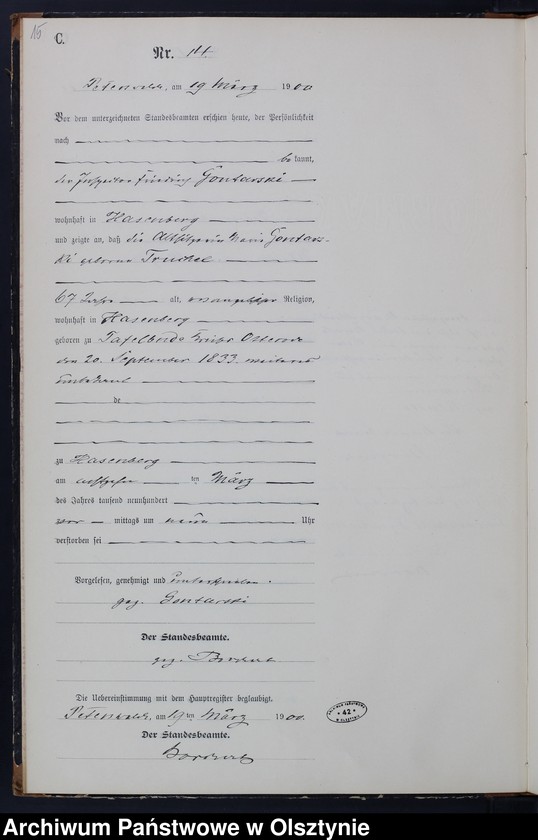 15
C.
Nr. 14.
Peterswalde, am 19 März 1900
Vor dem unterzeichneten Standesbeamten erschien heute, der Persönlichkeit
nach
bekannt,
der Inspektor Friedrich Gontarski
wohnhaft in Hasenberg
und zeigte an, daß die Altsitzerin Gontars-
ki geborne
67 Jahre alt, evangelischer Religion,
wohnhaft in Hasenberg
geboren zu Osterode
den 20. September 1833
unbekannt
de
zu Hasenberg
am ten März
des Jahres tausend neunhundert
vor mittags um neun Uhr
verstorben sei
Vorgelesen, genehmigt und unterschrieben.
gez. Gontarski
Der Standesbeamte.
gez. Borchert
Die Uebereinstimmung mit dem Hauptregister beglaubigt.
Peterswalde, am 19ten März 1900.
Der Standesbeamte.
Borchert
42
W OLSZTYNIE
Archiwum Państwowe w Olsztynie